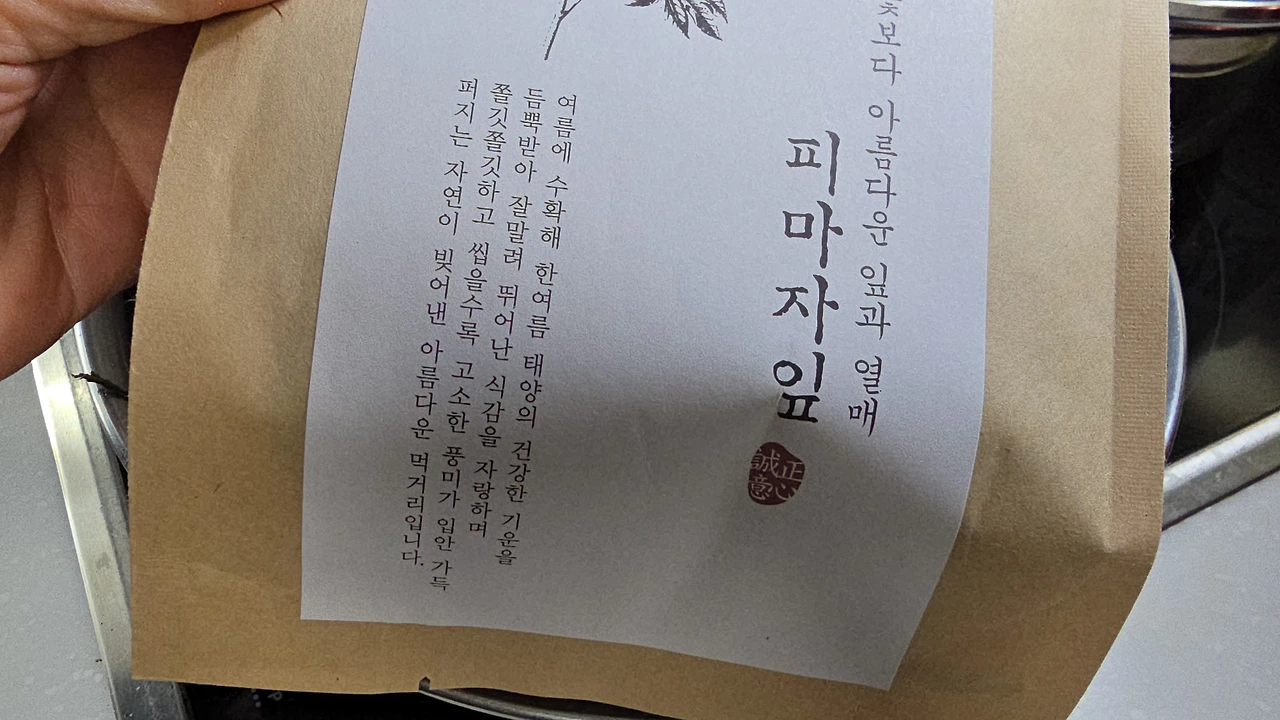 꽃보다 아름다운 잎과 열매
피마자잎
正心
誠意
여름에 수확해 한여름 태양의 건강한 기운을
듬뿍받아 잘말려 뛰어난 식감을 자랑하며
쫄깃쫄깃하고 씹을수록 고소한 풍미가 입안 가득
퍼지는 자연이 빚어낸 아름다운 먹거리입니다.